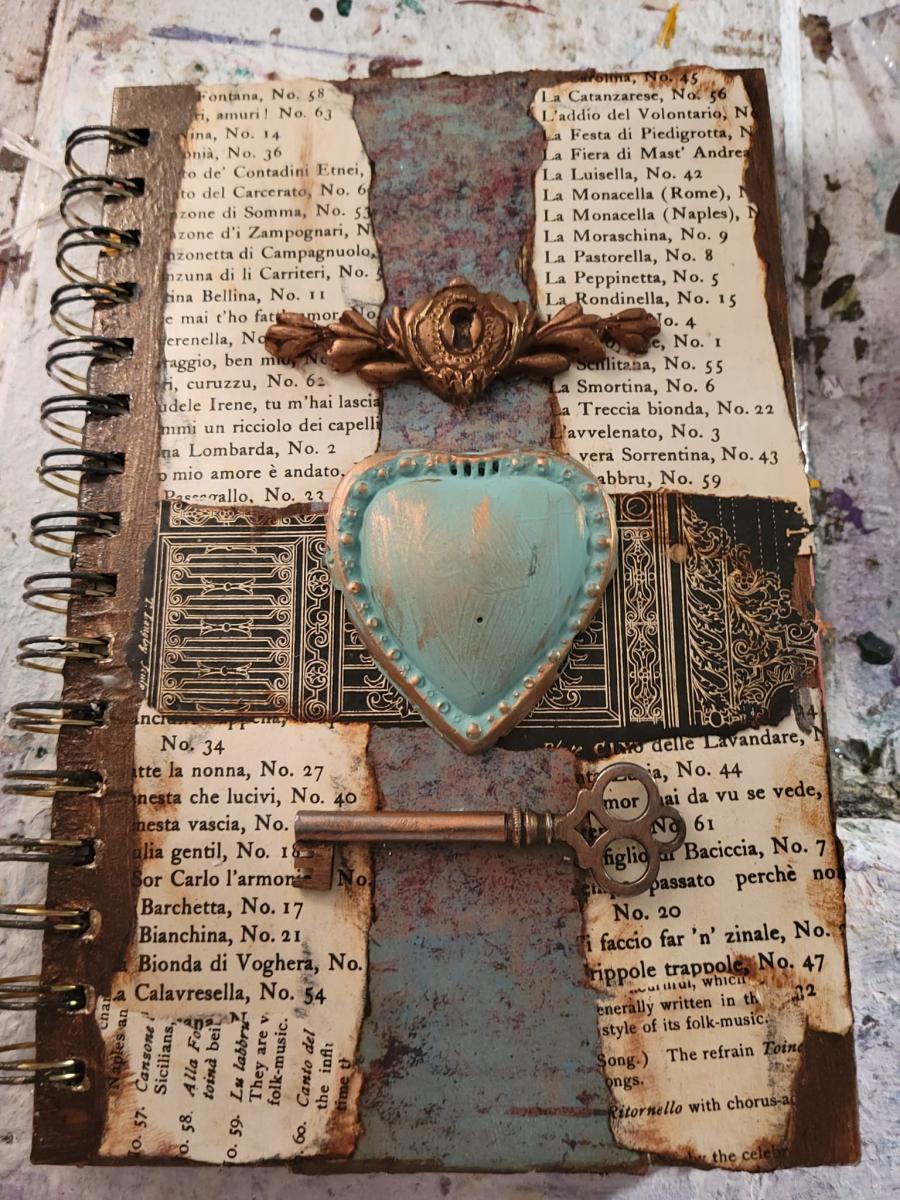 Fontana, No. 58
ri, amuri! No. 63
ina, No. 14
onià, No. 36
to de' Contadini Etnei,
to del Carcerato, No. 6
nzone di Somma, No. 53
nzone d'i Zampognari, N
nzonetta di Campagnuolo,
nzuna di li Carriteri, No. 5
tina Bellina, No. 11
e mai t'ho fatt amor No.
erenella, No.
raggio, ben mio, No
ri, curuzzu, No. 62
udele Irene, tu m'hai lascia
mmi un ricciolo dei capelli
na Lombarda, No. 2
o mio amore è andato,
Passagallo, No. 23
Carolina, No. 45
La Catanzarese, No. 56
L'addio del Volontario, N
La Festa di Piedigrotta, N
La Fiera di Mast' Andrea
La Luisella, No. 42
La Monacella (Rome), N
La Monacella (Naples), N
La Moraschina, No. 9
La Pastorella, No. 8
La Peppinetta, No. 5
La Rondinella, No. 15
No. 4
No. 1
La Sciflitana, No. 55
La Smortina, No. 6
La Treccia bionda, No. 22
L'avvelenato, No. 3
vera Sorrentina, No. 43
abbru, No. 59
No. 34
tte la nonna, No. 27
nesta che lucivi, No. 40
nesta vascia, No.
ulia gentil, No. 18
Sor Carlo l'armoni No.
Barchetta, No. 17
Bianchina, No. 21
a Bionda di Voghera, No.
a Calavresella, No. 54
Naples an
No. 57. Canzone
Sicilians,
o. 58. Alla Fon
toinà bei
o. 59. Lu labbru
They are v
folk-music.
60. Canto del
the infl
time t
delle Lavandare, N
ia, No. 44
mor mai da vu se vede,
No 61
figlio di Baciccia, No. 7
passato perchè no
No. 20
i faccio far 'n' zinale, No.
rippole trappole, No. 47
which
enerally written in th 32
style of its folk-music.
Song.) The refrain Toin
ongs.
Ritornello with chorus-a
by the celebr